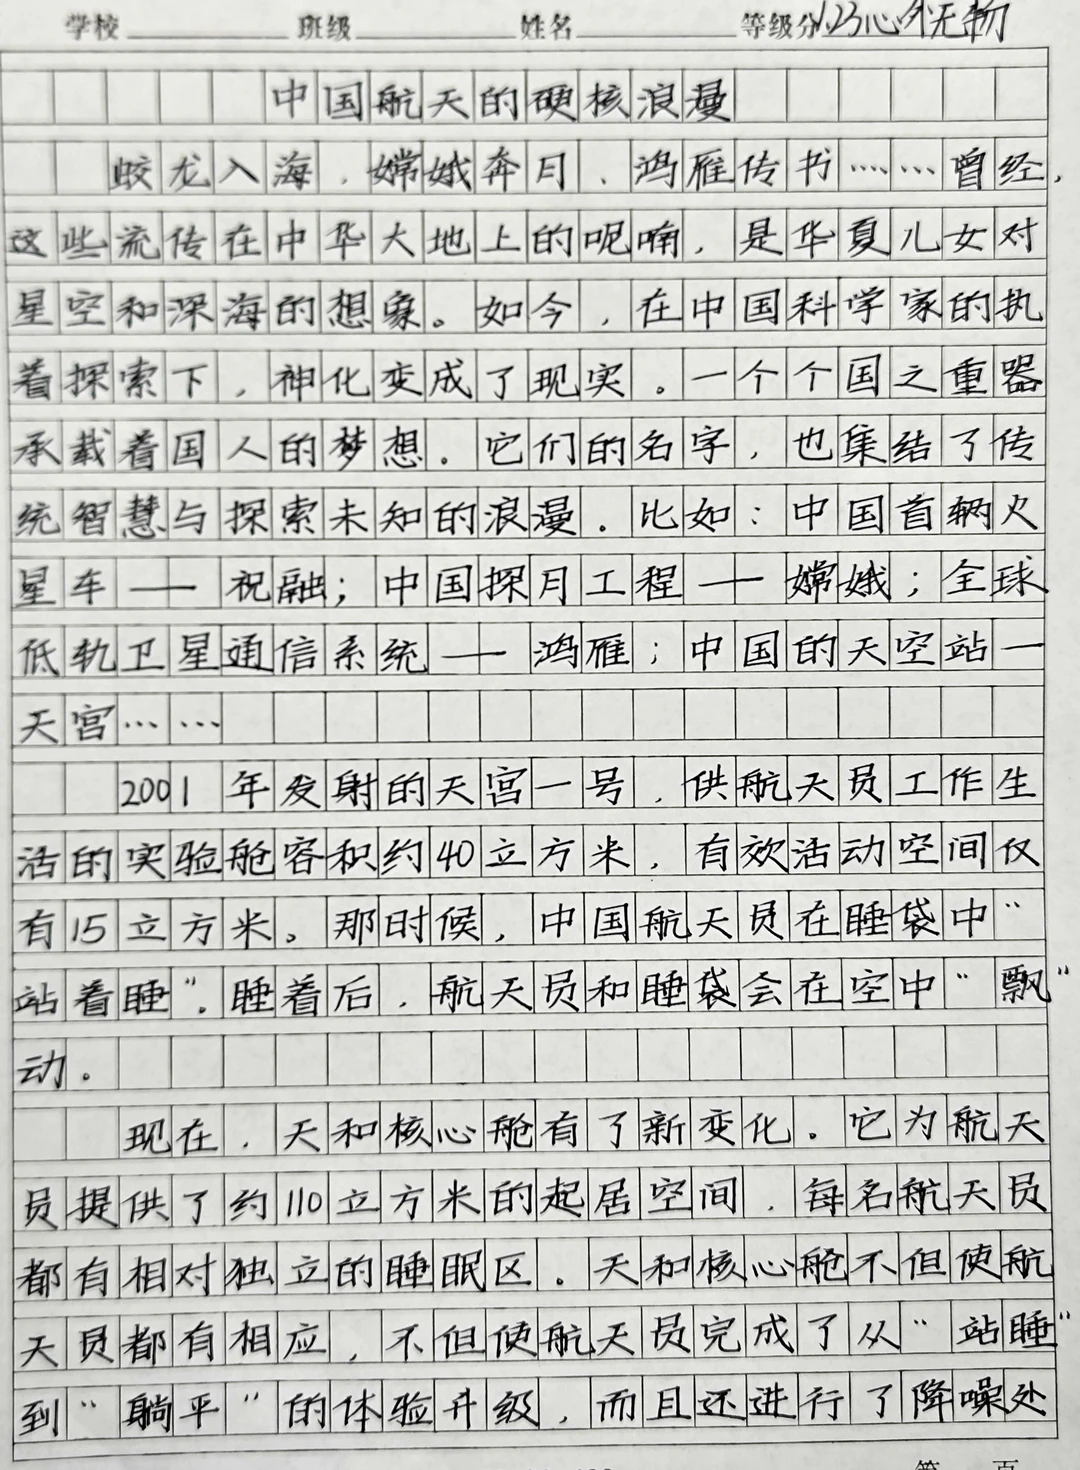 学校 班级 姓名 等级分 1.23心外无物
中国航天的硬核浪漫
蛟龙入海、嫦娥奔月、鸿雁传书……曾经,
这些流传在中华大地上的呢喃,是华夏儿女对
星空和深海的想象。如今,在中国科学家的执
着探索下,神化变成了现实。一个个国之重器
承载着国人的梦想。它们的名字,也集结了传
统智慧与探索未知的浪漫。比如:中国首辆火
星车——祝融;中国探月工程——嫦娥;全球
低轨卫星通信系统——鸿雁;中国的天空站—
天宫……
2001年发射的天宫一号,供航天员工作生
活的实验舱容积约40立方米,有效活动空间仅
有15立方米。那时候,中国航天员在睡袋中“
站着睡”。睡着后,航天员和睡袋会在空中“飘”
动。
现在,天和核心舱有了新变化。它为航天
员提供了约110立方米的起居空间,每名航天员
都有相对独立的睡眠区。天和核心舱不但使航
天员都有相应,不但使航天员完成了从“站睡”
到“躺平”的体验升级,而且还进行了降噪处